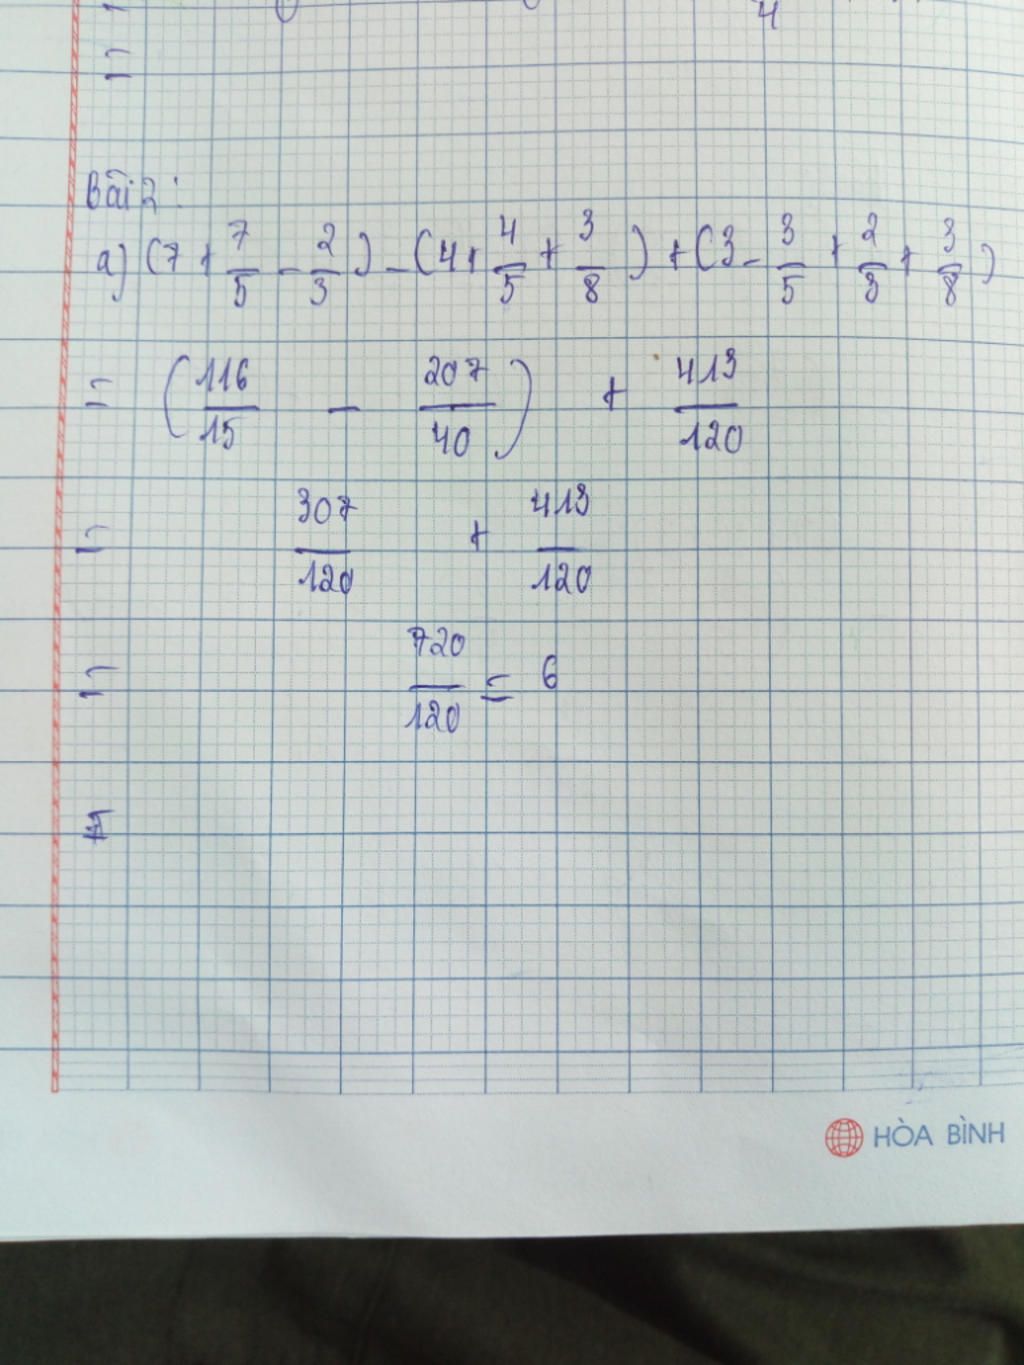 4
=
Bài 2:
a) (7 + 7/5 - 2/3) - (4 + 4/5 + 3/8) + (3 - 3/5 + 2/3 + 3/8)
= (116/15 - 207/40) + 413/120
= 307/120 + 413/120
= 720/120 = 6
HÒA BÌNH